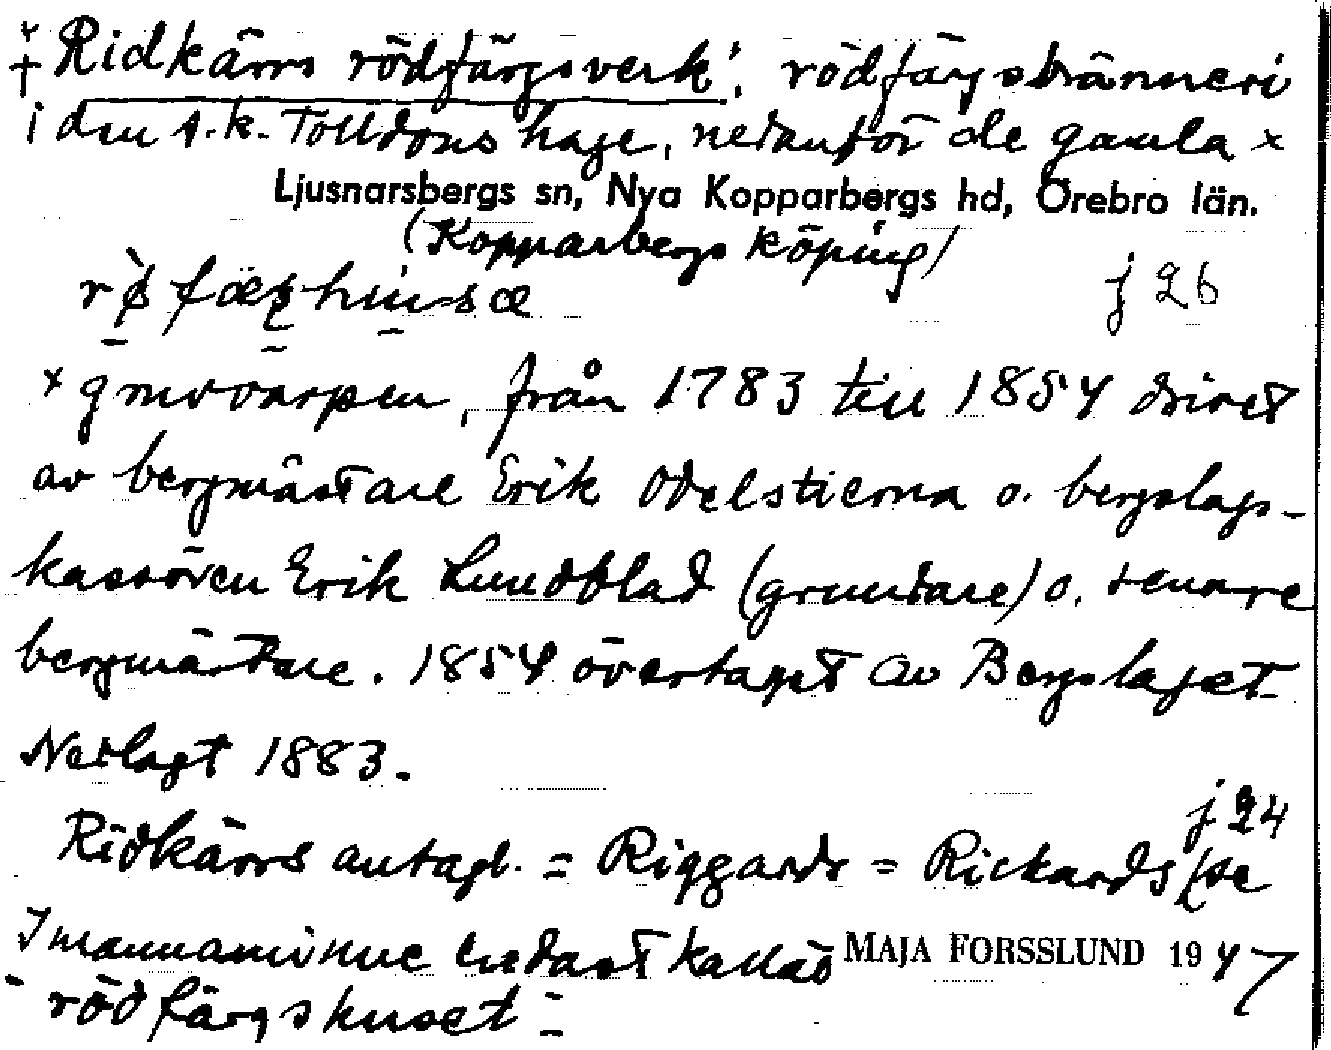 † Ridkärrs rödfärgsverk', rödfärgsbränneri
i den s.k. Tolldons hage, nedanför de gamla x
Ljusnarsbergs sn, Nya Kopparbergs hd, Örebro län.
(Kopparbergs köping)
j 26
x gruvvarpen, från 1783 till 1854 drivet
av bergmästare Erik Odelstierna o. bergslags-
kassören Erik Lundblad (grundare) o. senare
bergmästare. 1854 övertaget av Bergslaget
Nedlagt 1883.
j 24
Ridkärrs antagl. = Riggards = Rickards (se
I mannaminne endast kallad MAJA FORSSLUND 1947
"rödfärgshuset"